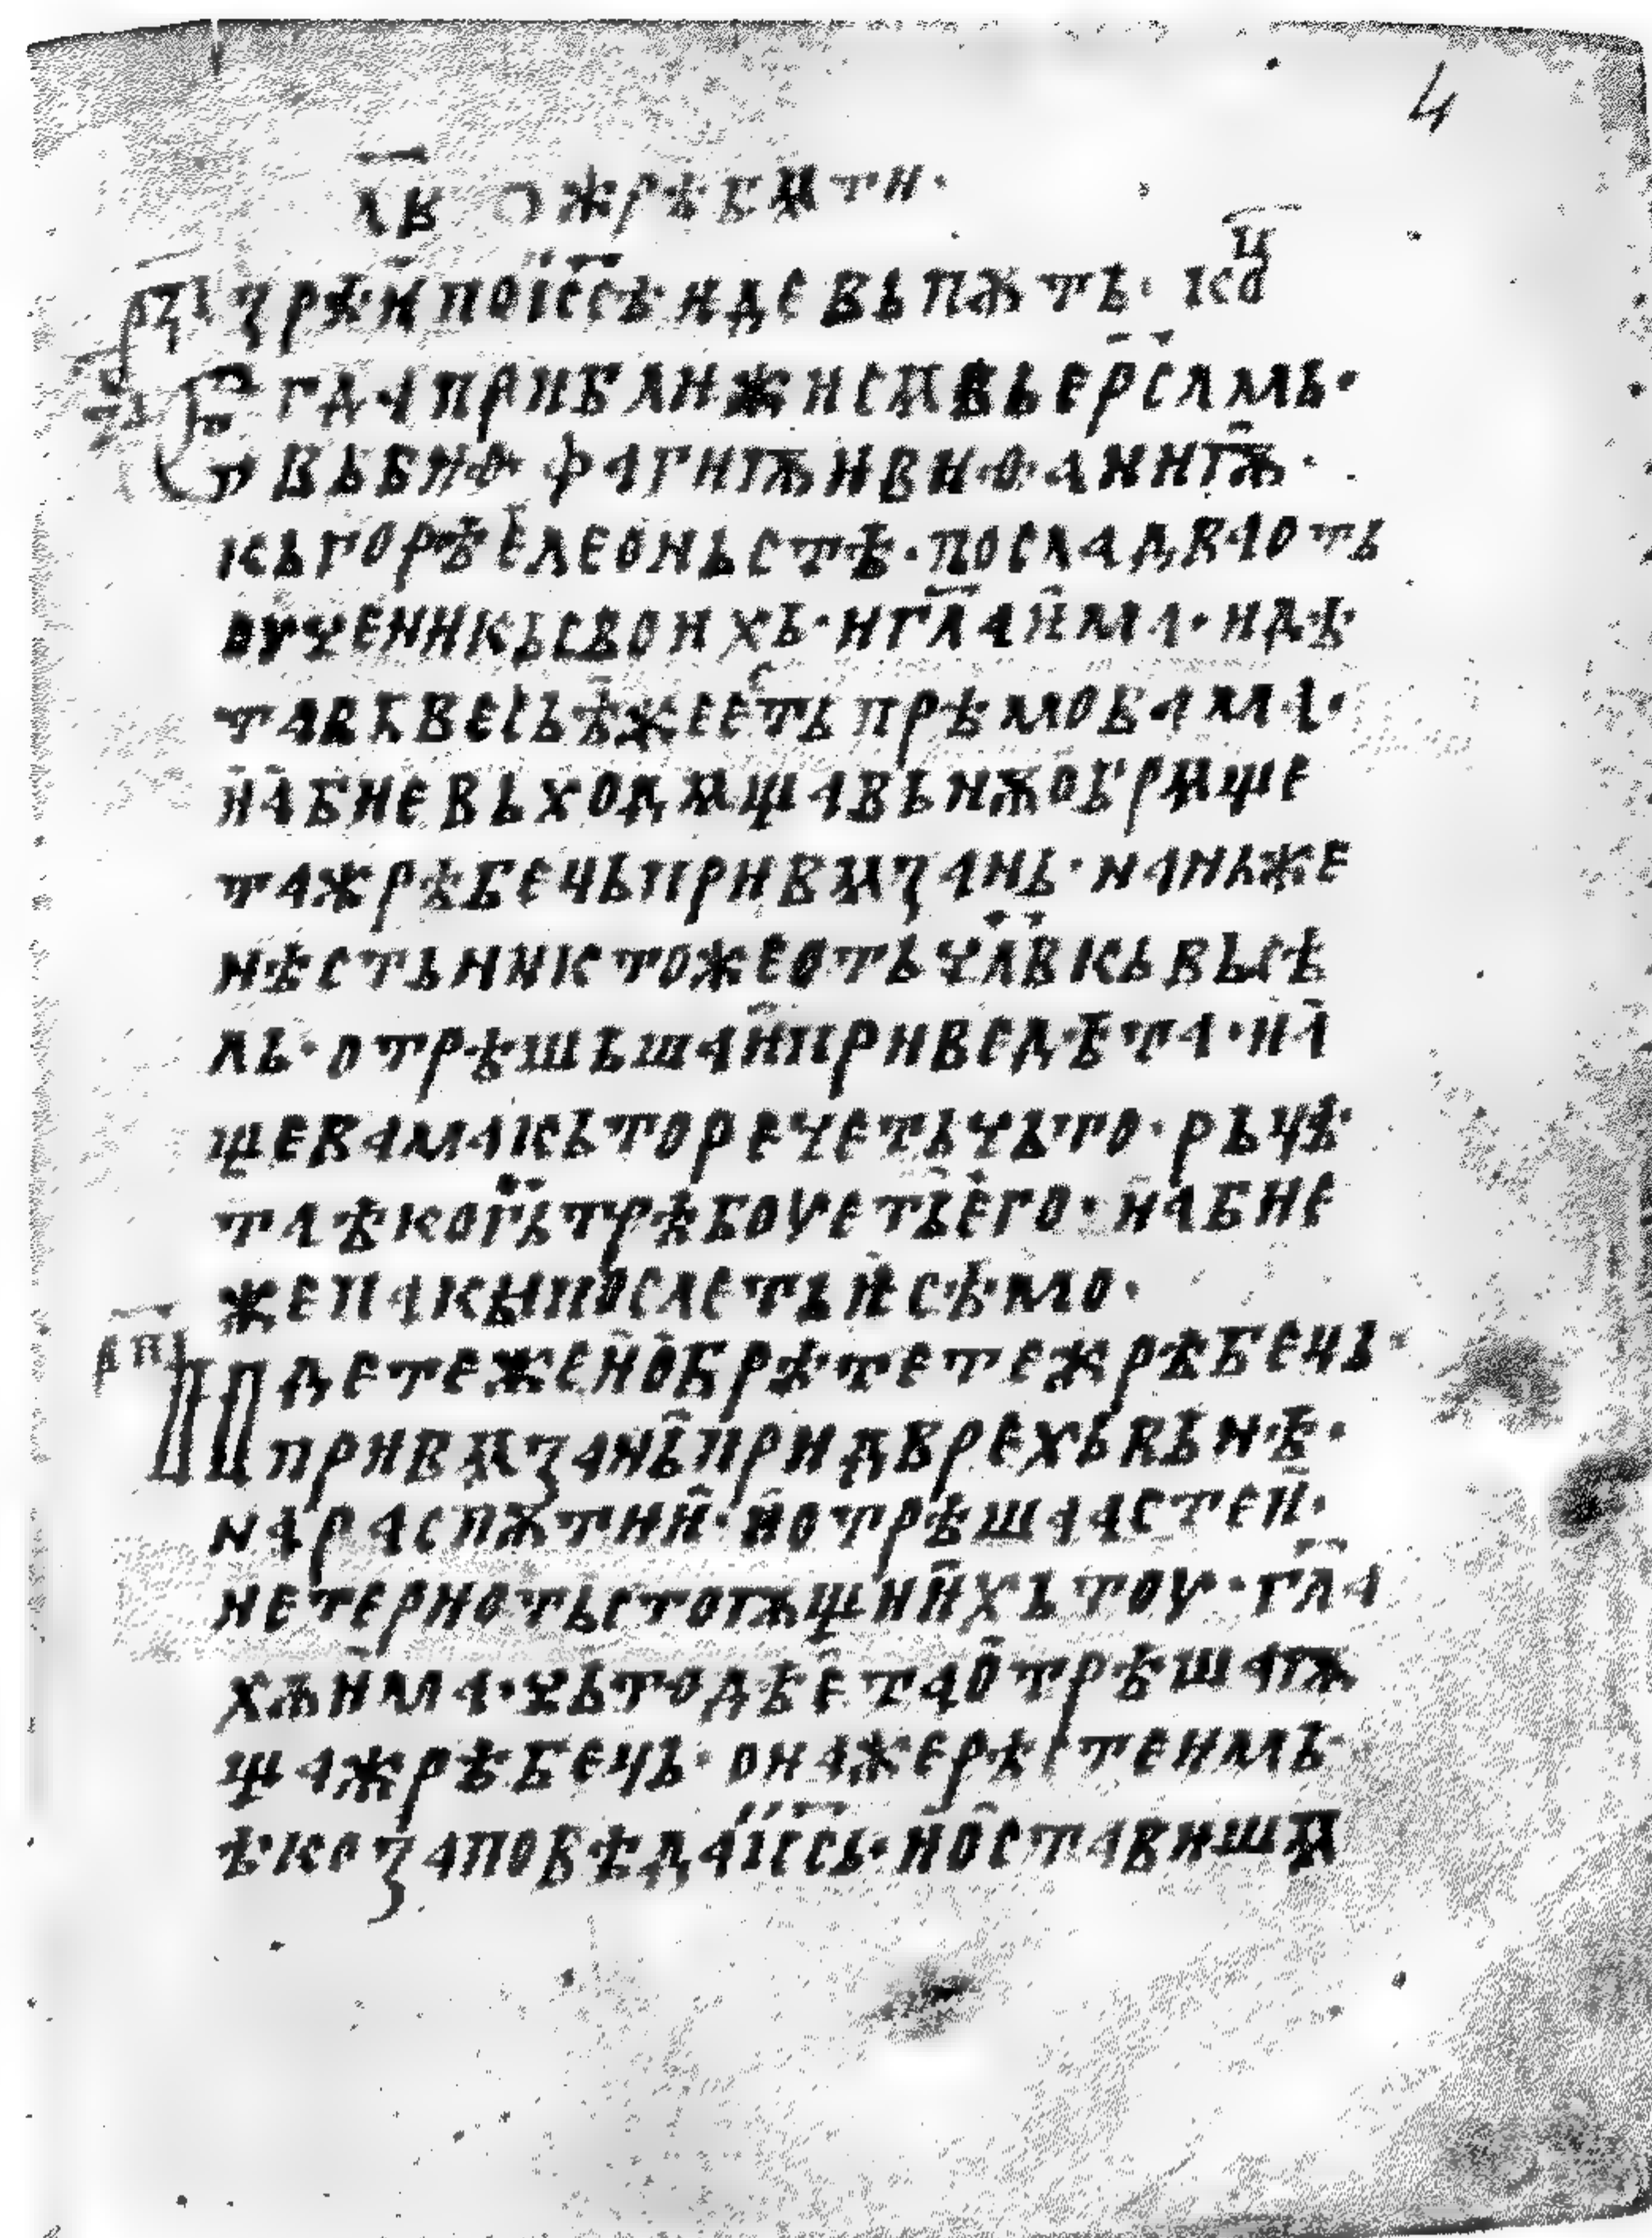 4
л҃в о жрѣбѧти·
зрѣи по і҃с҃ѣ иде вь пѫть· кс҃ц
Егда приближисѧ вь ер҃с҃лмь·
вьвиѳфагиѭ и виѳаниѭ·
кь горѣ елеоньстѣ· посла два отъ
оученикь своихь· и гл҃а има· идѣ
та вь весь ѣже есть прѣмо вама·
и абие въходѧща вь нѫ обрѧще
та жрѣбець привѧзань· на ньже
нѣсть никтоже оть чл҃вкь вьсѣ
ль· отрѣшьша и приведѣта· и а
ще вама кьто речеть чьто· рьцѣ
та ѣко г҃ь трѣбоуеть его· и абие
же пакы послеть и сѣмо·
Идете же и обрѣтете жрѣбець
привѧзань при дврехь вьнѣ·
на распѫтии· и отрѣшаасте и·
нетери отьстоѭщиихь тоу· гл҃а
хѫ има· чьто дѣета отрѣшаѭ
ща жрѣбець· она же рѣсте имь
ѣко заповѣда і҃с҃сь· и оставишѧ